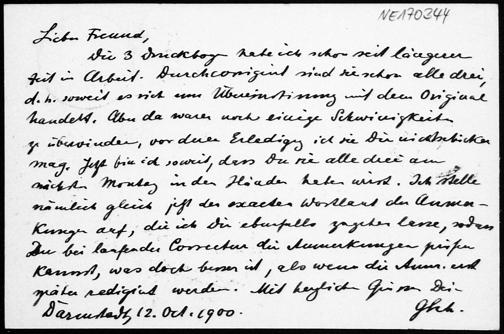 NE170344
Lieber Freund,
Die 3 Druckbog. habe ich schon seit längerer
Zeit in Arbeit. Durchcorrigirt sind sie schon alle drei,
d. h. soweit es sich um Übereinstimmung mit dem Original
handelt. Aber da waren noch einige Schwierigkeiten
zu überwinden, vor deren Erledigung ich sie Dir nicht schicken
mag. Jetzt bin ich soweit, dass Du sie alle drei am
nächsten Montag in den Händen haben wirst. Ich stelle
nämlich gleich jetzt den exacten Wortlaut der Anmer-
kungen auf, die ich Dir ebenfalls zugehen lasse, sodass
Du bei laufender Correctur die Anmerkungen prüfen
kannst, was doch besser ist, als wenn die Anm. erst
später redigirt werden. Mit herzlichen Grüssen Dein
Darmstadt, 12. Oct. 1900.